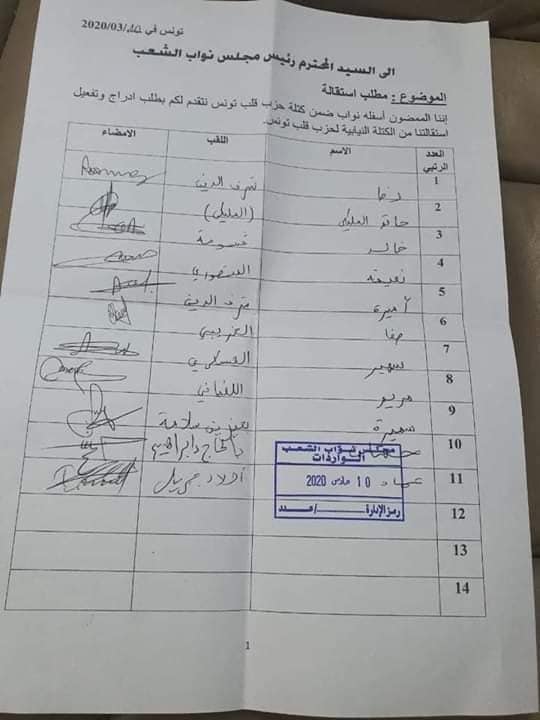 تونس في 10/03/2020
الى السيد المحترم رئيس مجلس نواب الشعب
الموضوع : مطلب استقالة
إننا الممضون أسفله نواب ضمن كتلة حزب قلب تونس نتقدم لكم بطلب ادراج وتفعيل
استقالتنا من الكتلة النيابية لحزب قلب تونس.
العدد الرتبي الاسم اللقب الامضاء
1 رضا شرف الدين
2 حاتم المليكي (المليكي)
3 خالد قسومة
4 نعيمة المنصوري
5 أميرة شرف الدين
6 صفا الغريبي
7 سهير العسكري
8 مريم اللغماني
9 سميرة بن سلامة
10 بالحاج ابراهيم
11 عماد أولاد جبريل
12
13
14
مجلس نواب الشعب
الواردات
10 مارس 2020
رمز الإدارة / عدد
1